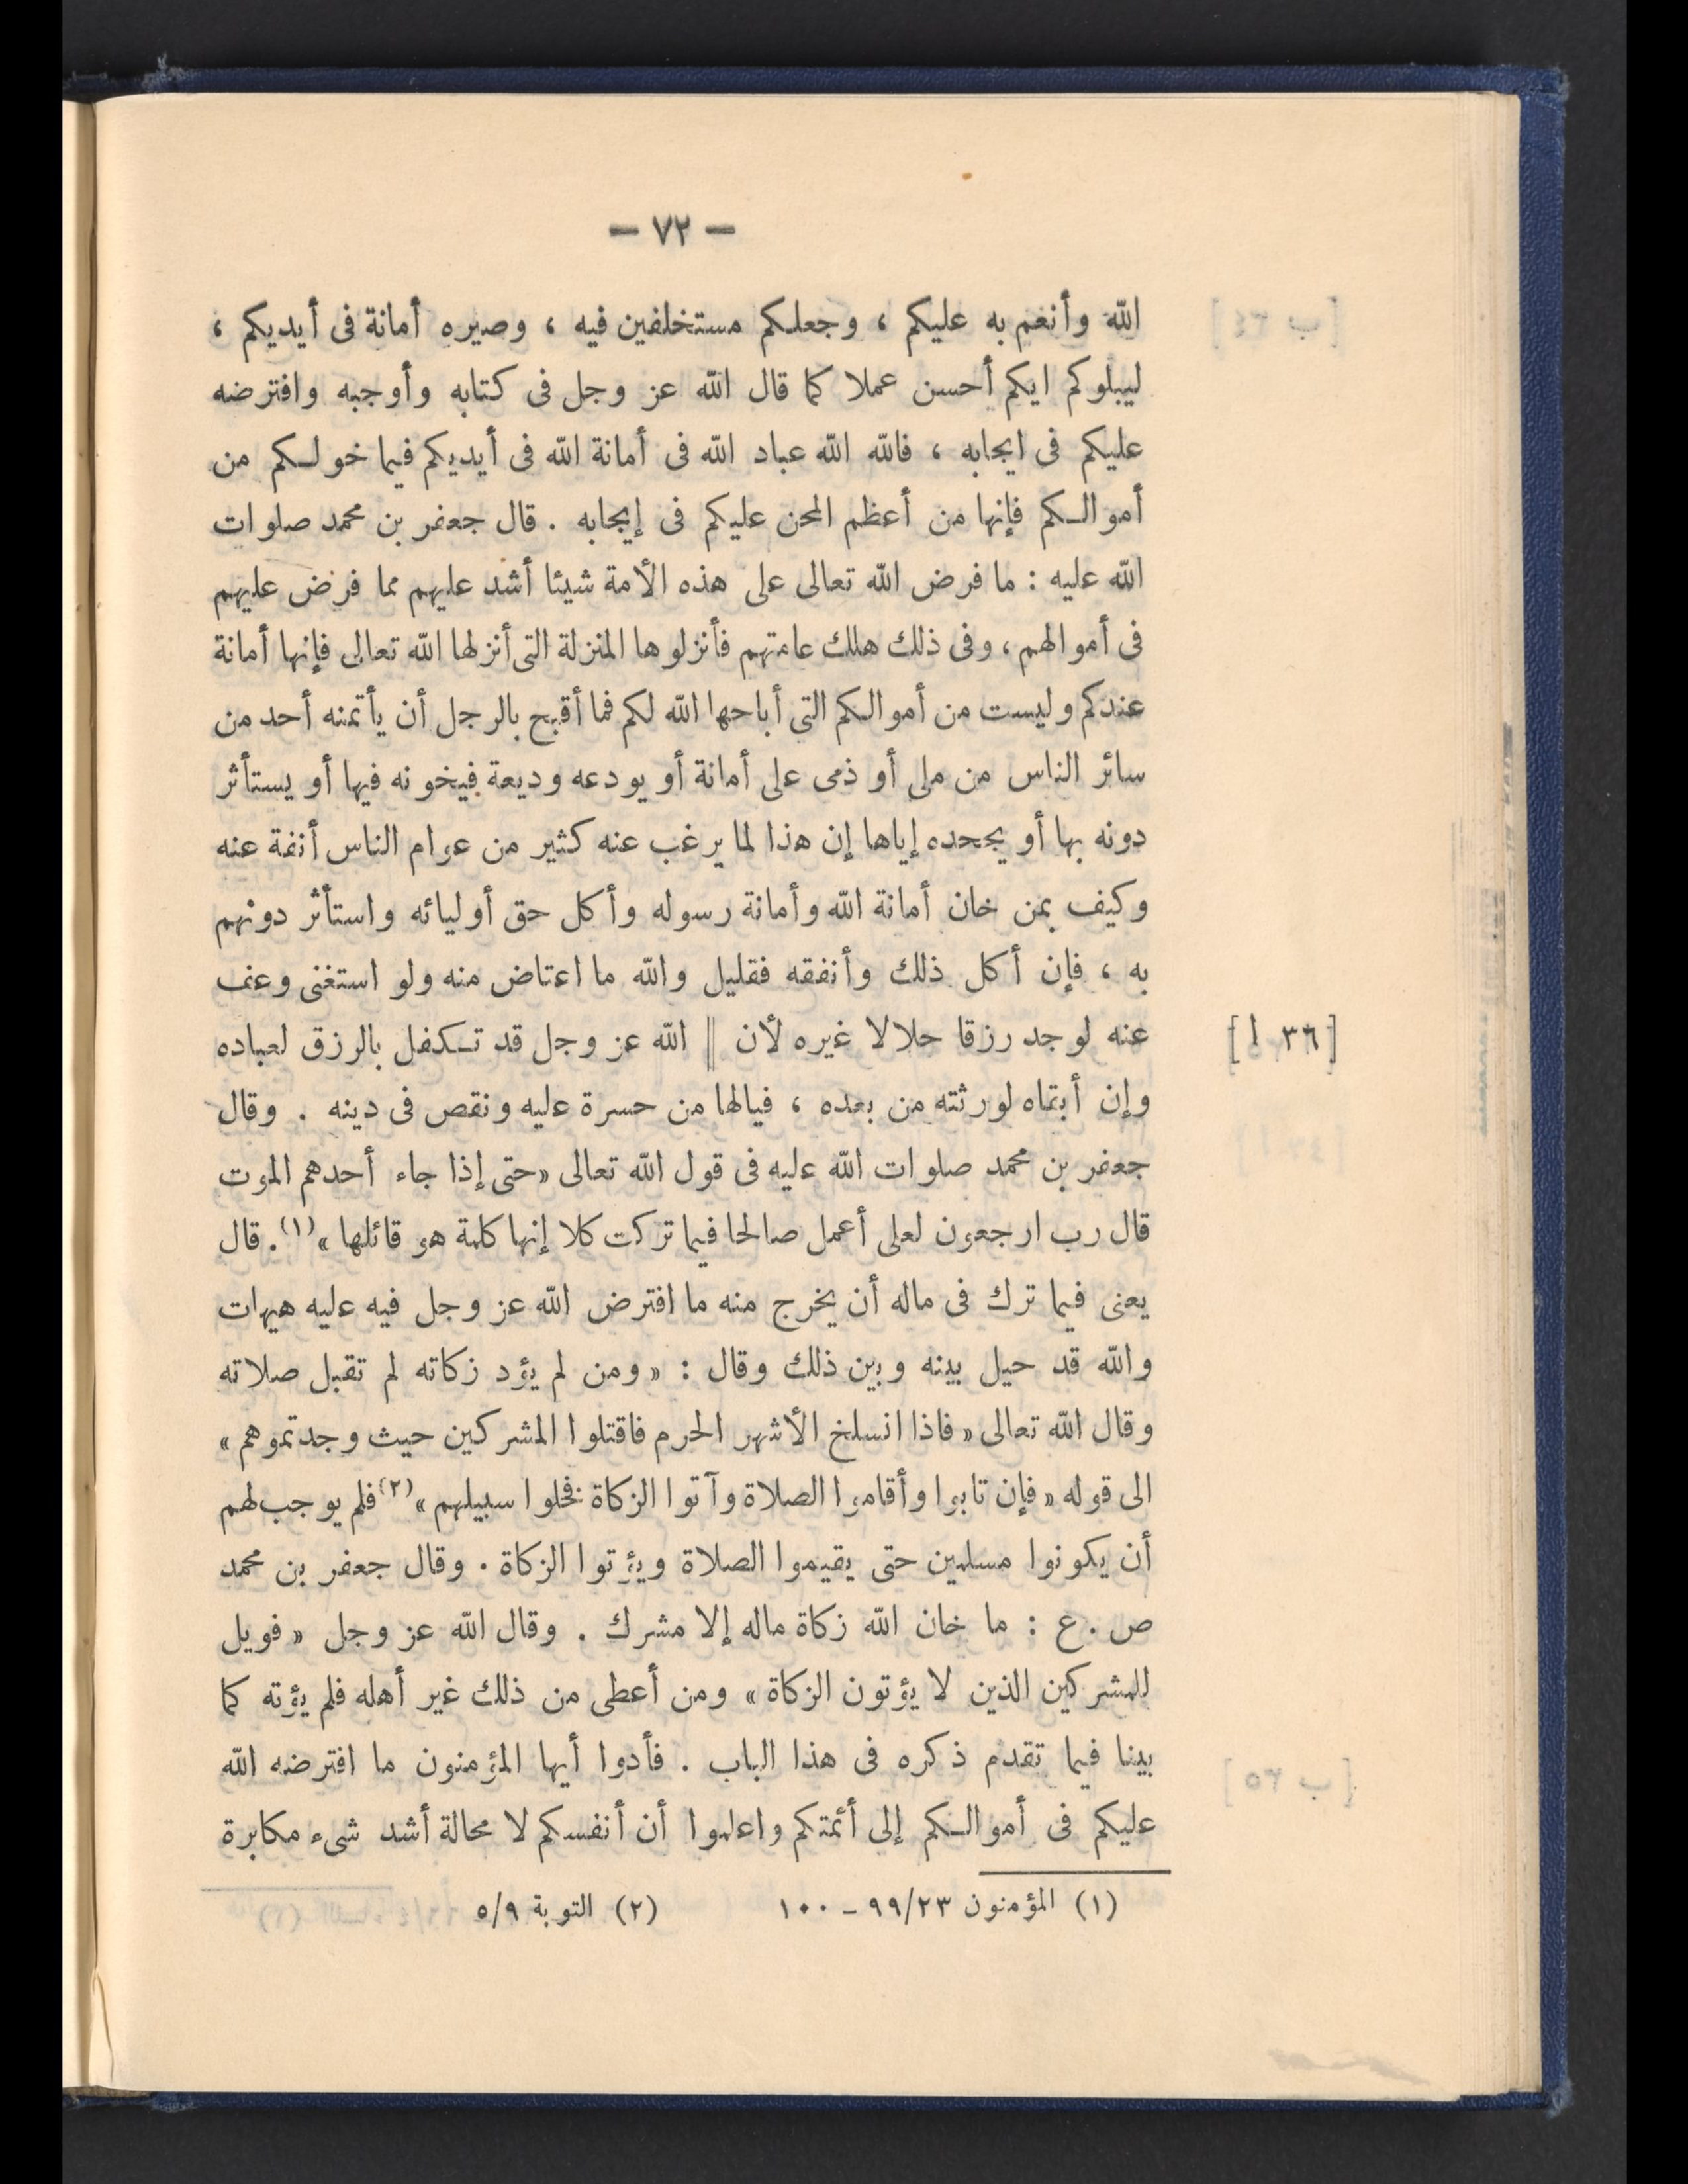 — ٧٢ —
الله وأنعم به عليكم ، وجعلكم مستخلفين فيه ، وصيره أمانة فى أيديكم ،
ليبلوكم ايكم أحسن عملا كما قال الله عز وجل فى كتابه وأوجبه وافترضه
عليكم فى ايجابه ، فالله الله عباد الله فى أمانة الله فى أيديكم فيما خولكم من
أموالكم فإنها من أعظم المحن عليكم فى إيجابه . قال جعفر بن محمد صلوات
الله عليه : ما فرض الله تعالى على هذه الأمة شيئا أشد عليهم مما فرض عليهم
فى أموالهم ، وفى ذلك هلك عامتهم فأنزلوها المنزلة التى أنزلها الله تعالى فإنها أمانة
عندكم وليست من أموالكم التى أباحها الله لكم فما أقبح بالرجل أن يأتمنه أحد من
سائر الناس من ملى أو ذمى على أمانة أو يودعه وديعة فيخونه فيها أو يستأثر
دونه بها أو يجحده إياها إن هذا لما يرغب عنه كثير من عوام الناس أنفة عنه
وكيف بمن خان أمانة الله وأمانة رسوله وأكل حق أوليائه واستأثر دونهم
به ، فإن أكل ذلك وأنفقه فقليل والله ما اعتاض منه ولو استغنى وعف
عنه لوجد رزقا حلالا غيره لأن || الله عز وجل قد تكفل بالرزق لعباده
[٣٦ ا]
وإن أبقاه لورثته من بعده ، فيالها من حسرة عليه ونقص فى دينه . وقال
جعفر بن محمد صلوات الله عليه فى قول الله تعالى «حتى إذا جاء أحدهم الموت
قال رب ارجعون لعلى أعمل صالحا فيما تركت كلا إنها كلمة هو قائلها »(١). قال
يعنى فيما ترك فى ماله أن يخرج منه ما افترض الله عز وجل فيه عليه هيهات
والله قد حيل بينه وبين ذلك وقال : « ومن لم يؤد زكاته لم تقبل صلاته
وقال الله تعالى « فاذا انسلخ الأشهر الحرم فاقتلوا المشركين حيث وجدتموهم »
الى قوله « فإن تابوا وأقاموا الصلاة وآتوا الزكاة فخلوا سبيلهم »(٢) فلم يوجب لهم
أن يكونوا مسلمين حتى يقيموا الصلاة ويؤتوا الزكاة . وقال جعفر بن محمد
ص . ع : ما خان الله زكاة ماله إلا مشرك . وقال الله عز وجل « فويل
للمشركين الذين لا يؤتون الزكاة » ومن أعطى من ذلك غير أهله فلم يؤته كما
بينا فيما تقدم ذكره فى هذا الباب . فأدوا أيها المؤمنون ما افترضه الله
عليكم فى أموالكم إلى أئمتكم واعلموا أن أنفسكم لا محالة أشد شىء مكابرة
(١) المؤمنون ٩٩/٢٣ – ١٠٠ (٢) التوبة ٥/٩